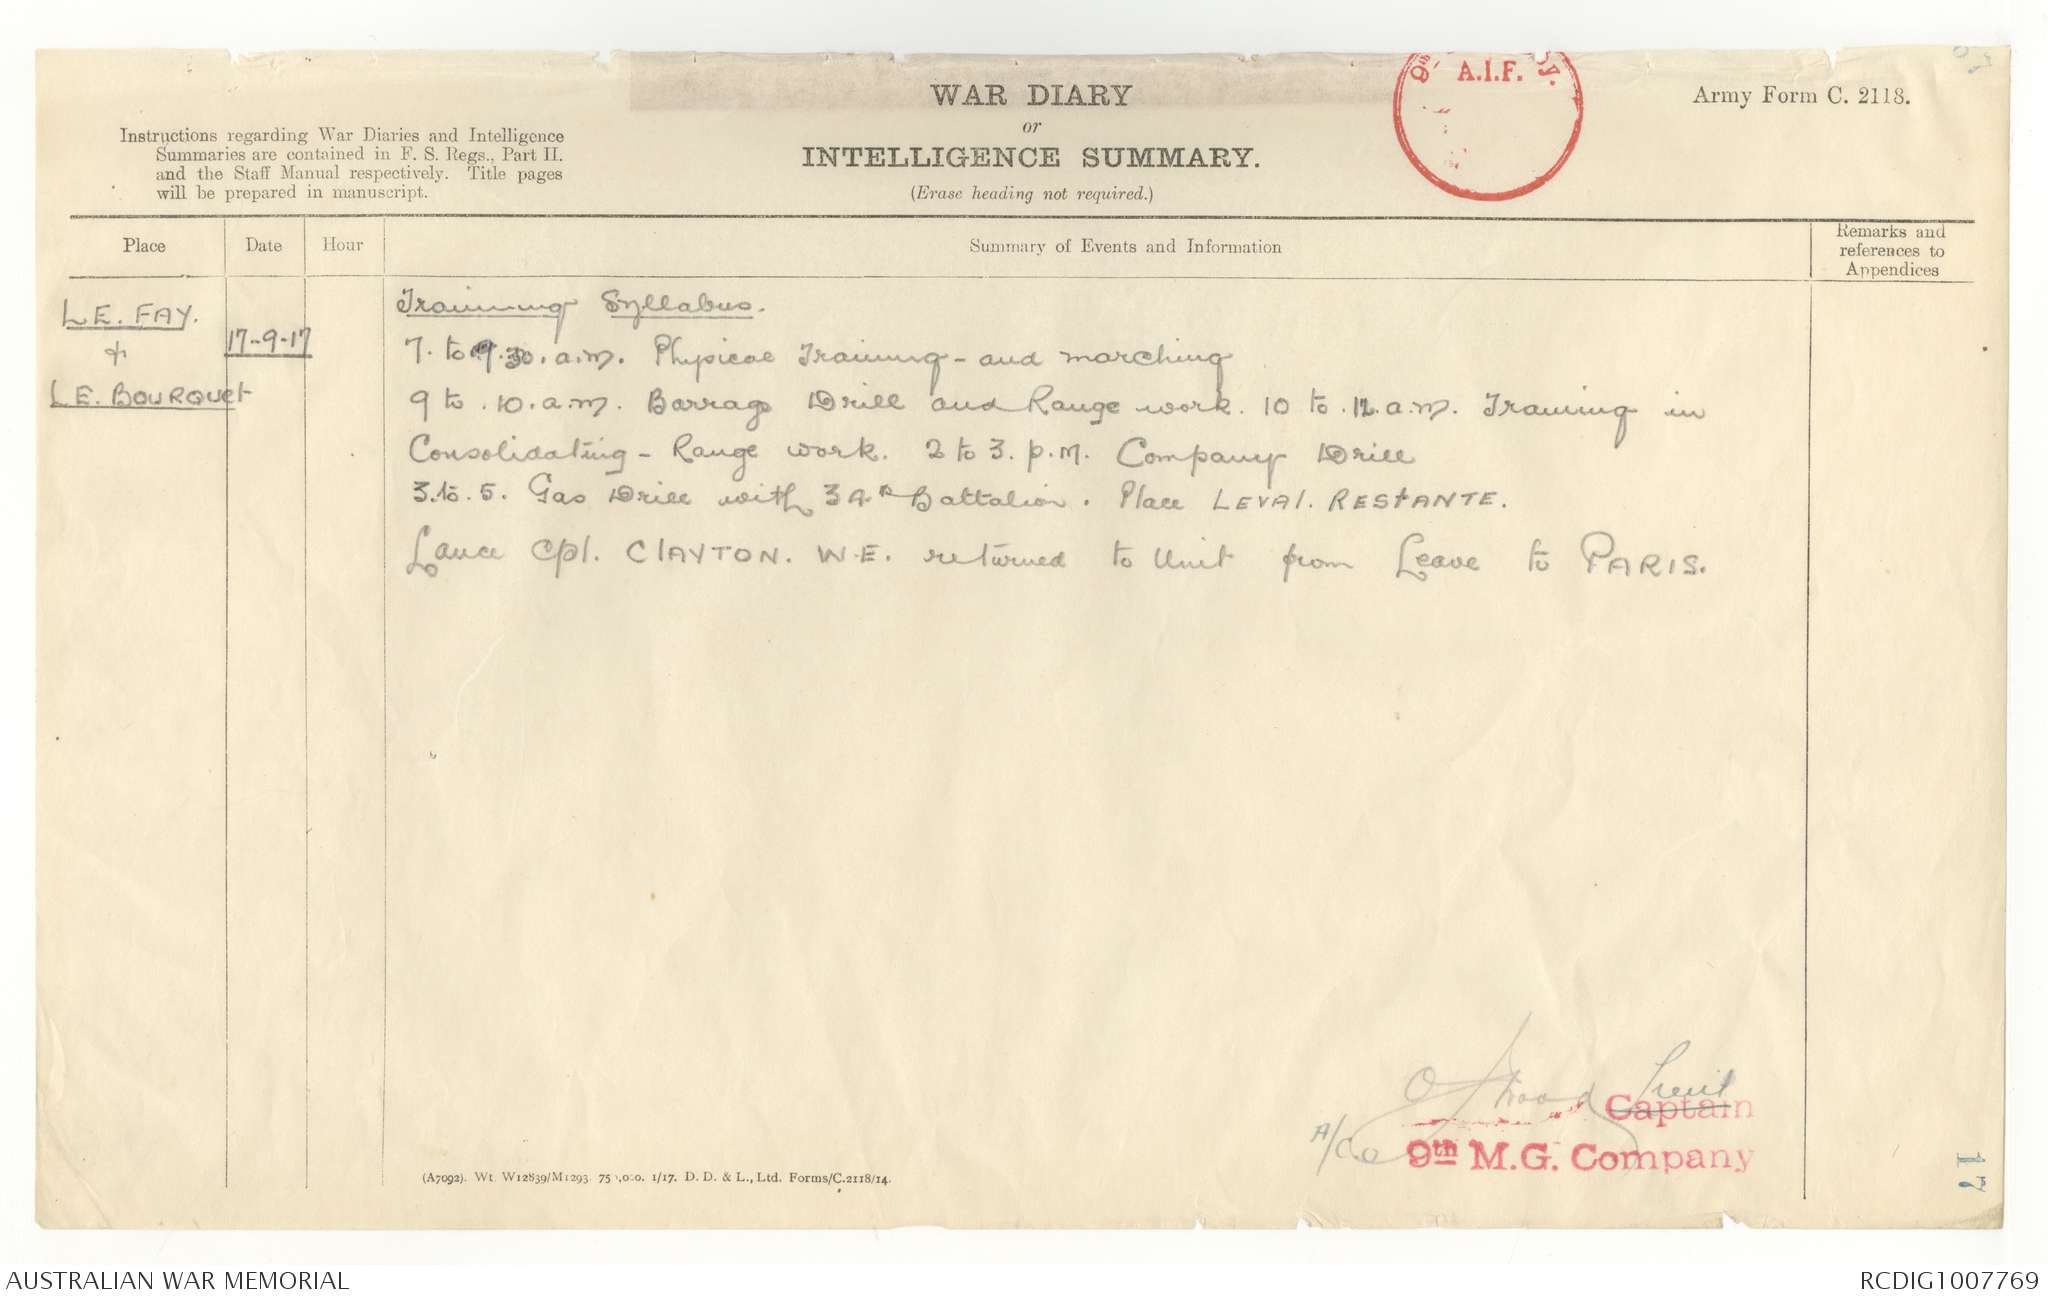 A.I.F.
WAR DIARY
or
INTELLIGENCE SUMMARY.
(Erase heading not required.)
Army Form C. 2118.
Instructions regarding War Diaries and Intelligence
Summaries are contained in F. S. Regs., Part II.
and the Staff Manual respectively. Title pages
will be prepared in manuscript.
Place
Date
Hour
Summary of Events and Information
Remarks and
references to
Appendices
LE. FAY.
&
LE. BOURQUET
17-9-17
Training Syllabus.
7. to 9.30. a.m. Physical Training - and marching
9 to .10. a.m. Barrage Drill and Range work. 10 to .12. a.m. Training in
Consolidating - Range work. 2 to 3. p.m. Company Drill
3. to. 5. Gas Drill with 34th Battalion. Place LEVAL. RESTANTE.
Lance Cpl. CLAYTON. W.E. returned to Unit from Leave to PARIS.
Wood Lieut
Captain
A/Co 9th M.G. Company
(A7092). Wt. W12839/M1293. 75 ,0.0. 1/17. D. D. & L., Ltd. Forms/C.2118/14.
17
AUSTRALIAN WAR MEMORIAL
RCDIG1007769